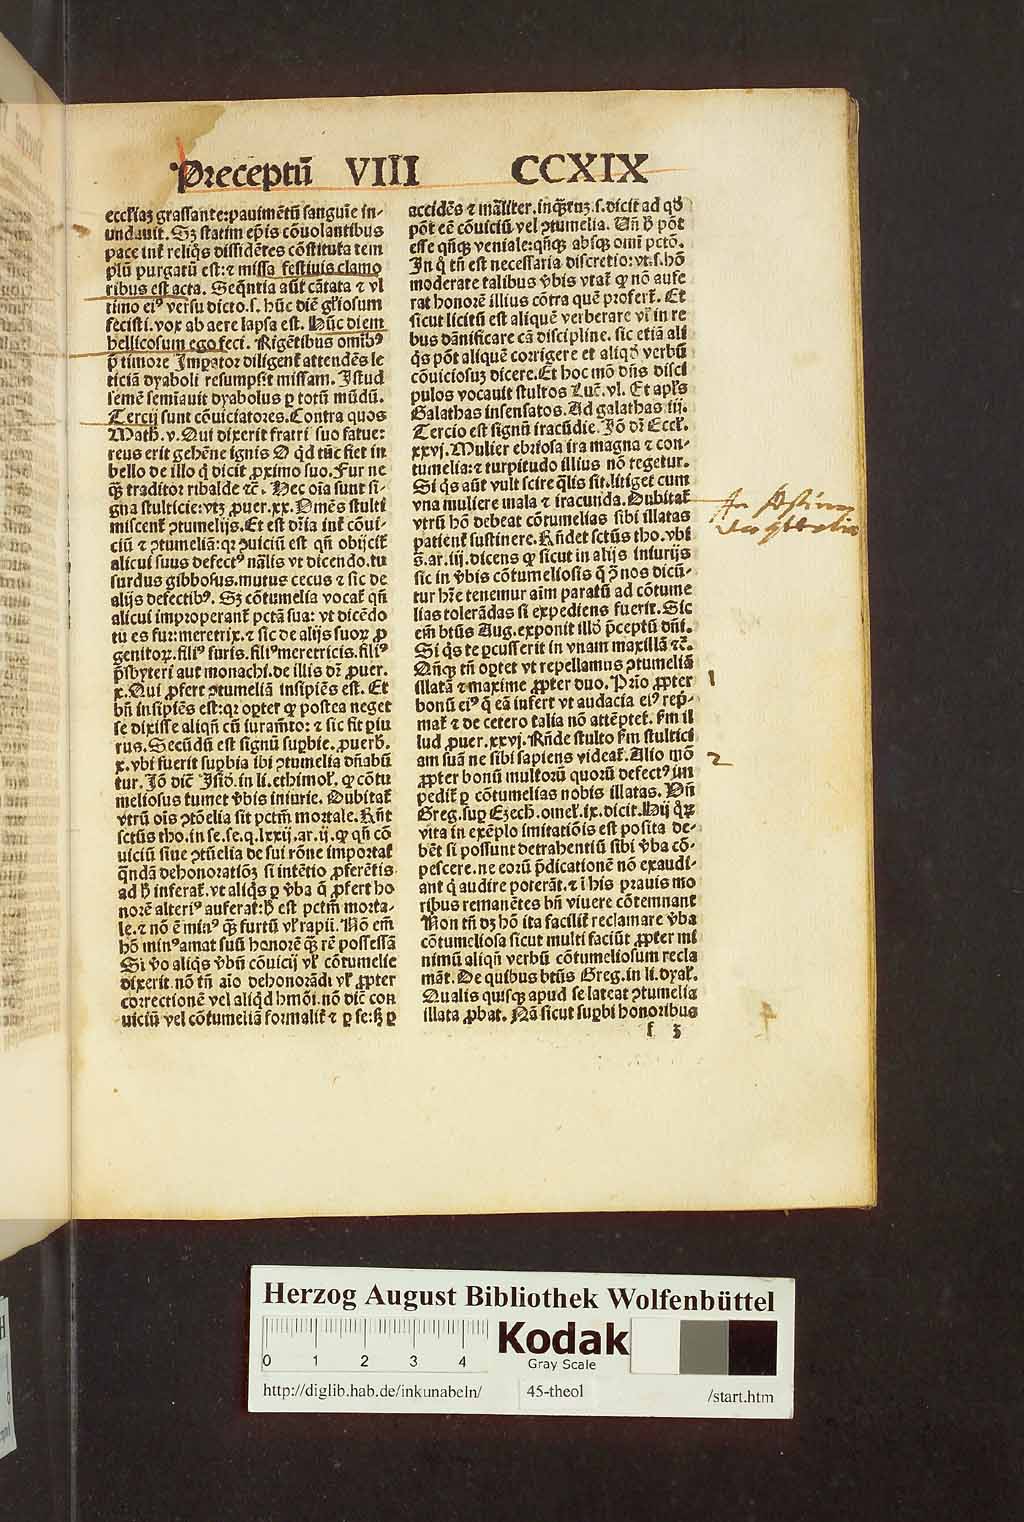 Preceptū VIII CCXIX
eccl'iaʒ grassante: pauimētū sanguīe in-
undauit. Sʒ statim ep̄is cōuolantibus
pace int̄ reliq̄s dissidētes cōstituta tem
plū purgatū est: ⁊ missa festiuis clamo
ribus est acta. Seq̄ntia aūt cātata ⁊ vl
timo eiꝰ versu dicto.s. hūc diē gl'iosum
fecisti. vox ab aere lapsa est. Hūc diem
bellicosum ego feci. Rigētibus omībꝰ
p̄ timore Imꝑator diligent̄ attendēs le
ticiā dyaboli resumpsit missam. Istud
semē semīauit dyabolus ꝑ totū mūdū.
Tercij sunt cōuiciatores. Contra quos
Math. v. Qui dixerit fratri suo fatue:
reus erit gehēne ignis O q̄d tūc fiet in
bello de illo q̄ dicit ꝓximo suo. Fur ne
q̄ʒ traditor ribalde ⁊c̄. Hec oīa sunt si-
gna stulticie: vtʒ ꝓuer.xx. Om̄es stulti
miscent̄ ꝯtumelijs. Et est dr̄ia int̄ cōui-
ciū ⁊ ꝯtumeliā: qꝛ ꝯuiciū est qn̄ obijcit̄
alicui suus defectꝰ nālis vt dicendo. tu
surdus gibbosus. mutus cecus ⁊ sic de
alijs defectibꝰ. Sʒ cōtumelia vocat̄ qn̄
alicui improperant̄ pctā sua: vt dicēdo
tu es fur: meretrix. ⁊ sic de alijs suoꝝ ꝓ
genitoꝝ. filiꝰ furis. filiꝰ meretricis. filiꝰ
p̄sbyteri aut monachi. de illis dr̄ ꝓuer.
x. Qui ꝓfert ꝯtumeliā insipiēs est. Et
bn̄ insipiēs est: qꝛ oꝑtet ꝙ postea neget
se dixisse aliqn̄ cū iuram̄to: ⁊ sic fit ꝑiu
rus. Secūdū est signū suꝑbie. ꝓuerb.
x. vbi fuerit suꝑbia ibi ꝯtumelia dn̄abū
tur. Iō dic̄ Isid̄. in li. ethimol'. ꝙ cōtu
meliosus tumet v̄bis iniurie. Dubitat̄
vtrū oīs ꝯtōelia sit pctm̄ mortale. Rn̄t
sctūs tho. in se.se.q.lxxij.ar.ij. ꝙ qn̄ cō
uiciū siue ꝯtūelia de sui rōne importat̄
q̄ndā dehonoratiōʒ si intētio ꝓferētis
ad h̄ inferat̄. vt aliq̄s ꝑ v̄ba q̄ ꝓfert ho
norē alteriꝰ auferat: h̄ est pctm̄ morta-
le. ⁊ nō ē minꝰ q̄ʒ furtū vl' rapīi. Nō em̄
hō minꝰ amat suū honorē q̄ʒ rē possessā
Si v̄o aliq̄s v̄bū cōuicij vl' cōtumelie
dixerit. nō tn̄ aīo dehonorādi vl' ꝓpter
correctionē vel aliqd hmōi. nō dic̄ con
uiciū vel cōtumeliā formalit̄ ⁊ ꝑ se: sʒ ꝑ
accidēs ⁊ māliter. inq̄ʒtuʒ.s. dicit ad qd̄
pōt eē cōuiciū vel ꝯtumelia. Vn̄ h̄ pōt
esse qn̄qʒ veniale: qn̄qʒ absqʒ omī pctō.
In q̄ tn̄ est necessaria discretio: vt.s. hō
moderate talibus v̄bis vtat̄ ꝙ nō aufe
rat honorē illius cōtra quē profert̄. Et
sicut licitū est aliquē verberare vl' in re
bus dānificare cā discipline. sic etiā ali
q̄s pōt aliquē corrigere et aliqd̄ verbū
cōuiciosuʒ dicere. Et hoc mō dn̄s disci
pulos vocauit stultos Luc̄. vl. Et apl's
Galathas insensatos. Ad galathas iij.
Tercio est signū iracūdie. Iō dr̄ Eccl'.
xxvj. Mulier ebriosa ira magna ⁊ con-
tumelia: ⁊ turpitudo illius nō tegetur.
Si q̄s aūt vult scire q̄lis sit. litiget cum
vna muliere mala ⁊ iracunda. Dubitat̄
vtrū hō debeat cōtumelias sibi illatas
patient̄ sustinere. Rn̄det sctūs tho. vbi
s̄. ar. iij. dicens ꝙ sicut in alijs iniurijs
sic in v̄bis cōtumeliosis q̄ ꝯ̄ nos dicū-
tur hr̄e tenemur aīm paratū ad cōtume
lias tolerādas si expediens fuerit. Sic
em̄ btūs Aug. exponit illd̄ p̄ceptū dn̄i.
Si q̄s te ꝑcusserit in vnam maxillā ⁊c̄.
Qn̄qʒ tn̄ oꝑtet vt repellamus ꝯtumeliā
illatā ⁊ maxime ꝓpter duo. Prīo ꝓpter
bonū eiꝰ q̄ eā infert vt audacia eiꝰ rep̄-
mat̄ ⁊ de cetero talia nō attēptet. fm il
lud ꝓuer.xxvj. Rn̄de stulto fm stultici
am suā ne sibi sapiens videat̄. Alio mō
ꝓpter bonū multorū quorū defectꝰ im
pedit̄ ꝑ cōtumelias nobis illatas. Vn̄
Greg. suꝑ Ezech. omel'. ix. dicit. Hij q̄ꝝ
vita in exēplo imitatiōis est posita de-
bēt si possunt detrahentiū sibi v̄ba cō-
pescere. ne eorū p̄dicationē nō exaudi-
ant q̄ audire poterāt. ⁊ ī his prauis mo
ribus remanētes bn̄ viuere cōtemnant
Non tn̄ dʒ hō ita facilit̄ reclamare v̄ba
cōtumeliosa sicut multi faciūt ꝓpter mi
nimū aliqn̄ verbū cōtumeliosum recla
māt. De quibus btūs Greg. in li. dyal'.
Qualis quisqʒ apud se lateat ꝯtumelia
illata ꝓbat. Nā sicut suꝑbi honoribus
f ʒ
1
2
Herzog August Bibliothek Wolfenbüttel
0 1 2 3 4
Kodak
Gray Scale
http://diglib.hab.de/inkunabeln/ 45-theol /start.htm